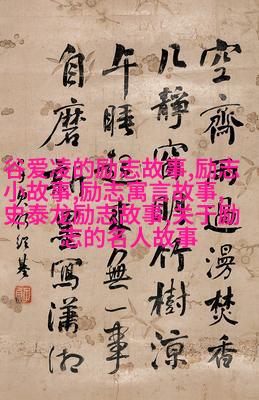 谷爱凌的励志故事,励志
小故事,励志寓言故事,
史泰龙励志故事,关于励
志的名人故事
空齋過漫焚香
几靜窗明竹樹涼
午睡無一事
自磨墨寫瀟湘